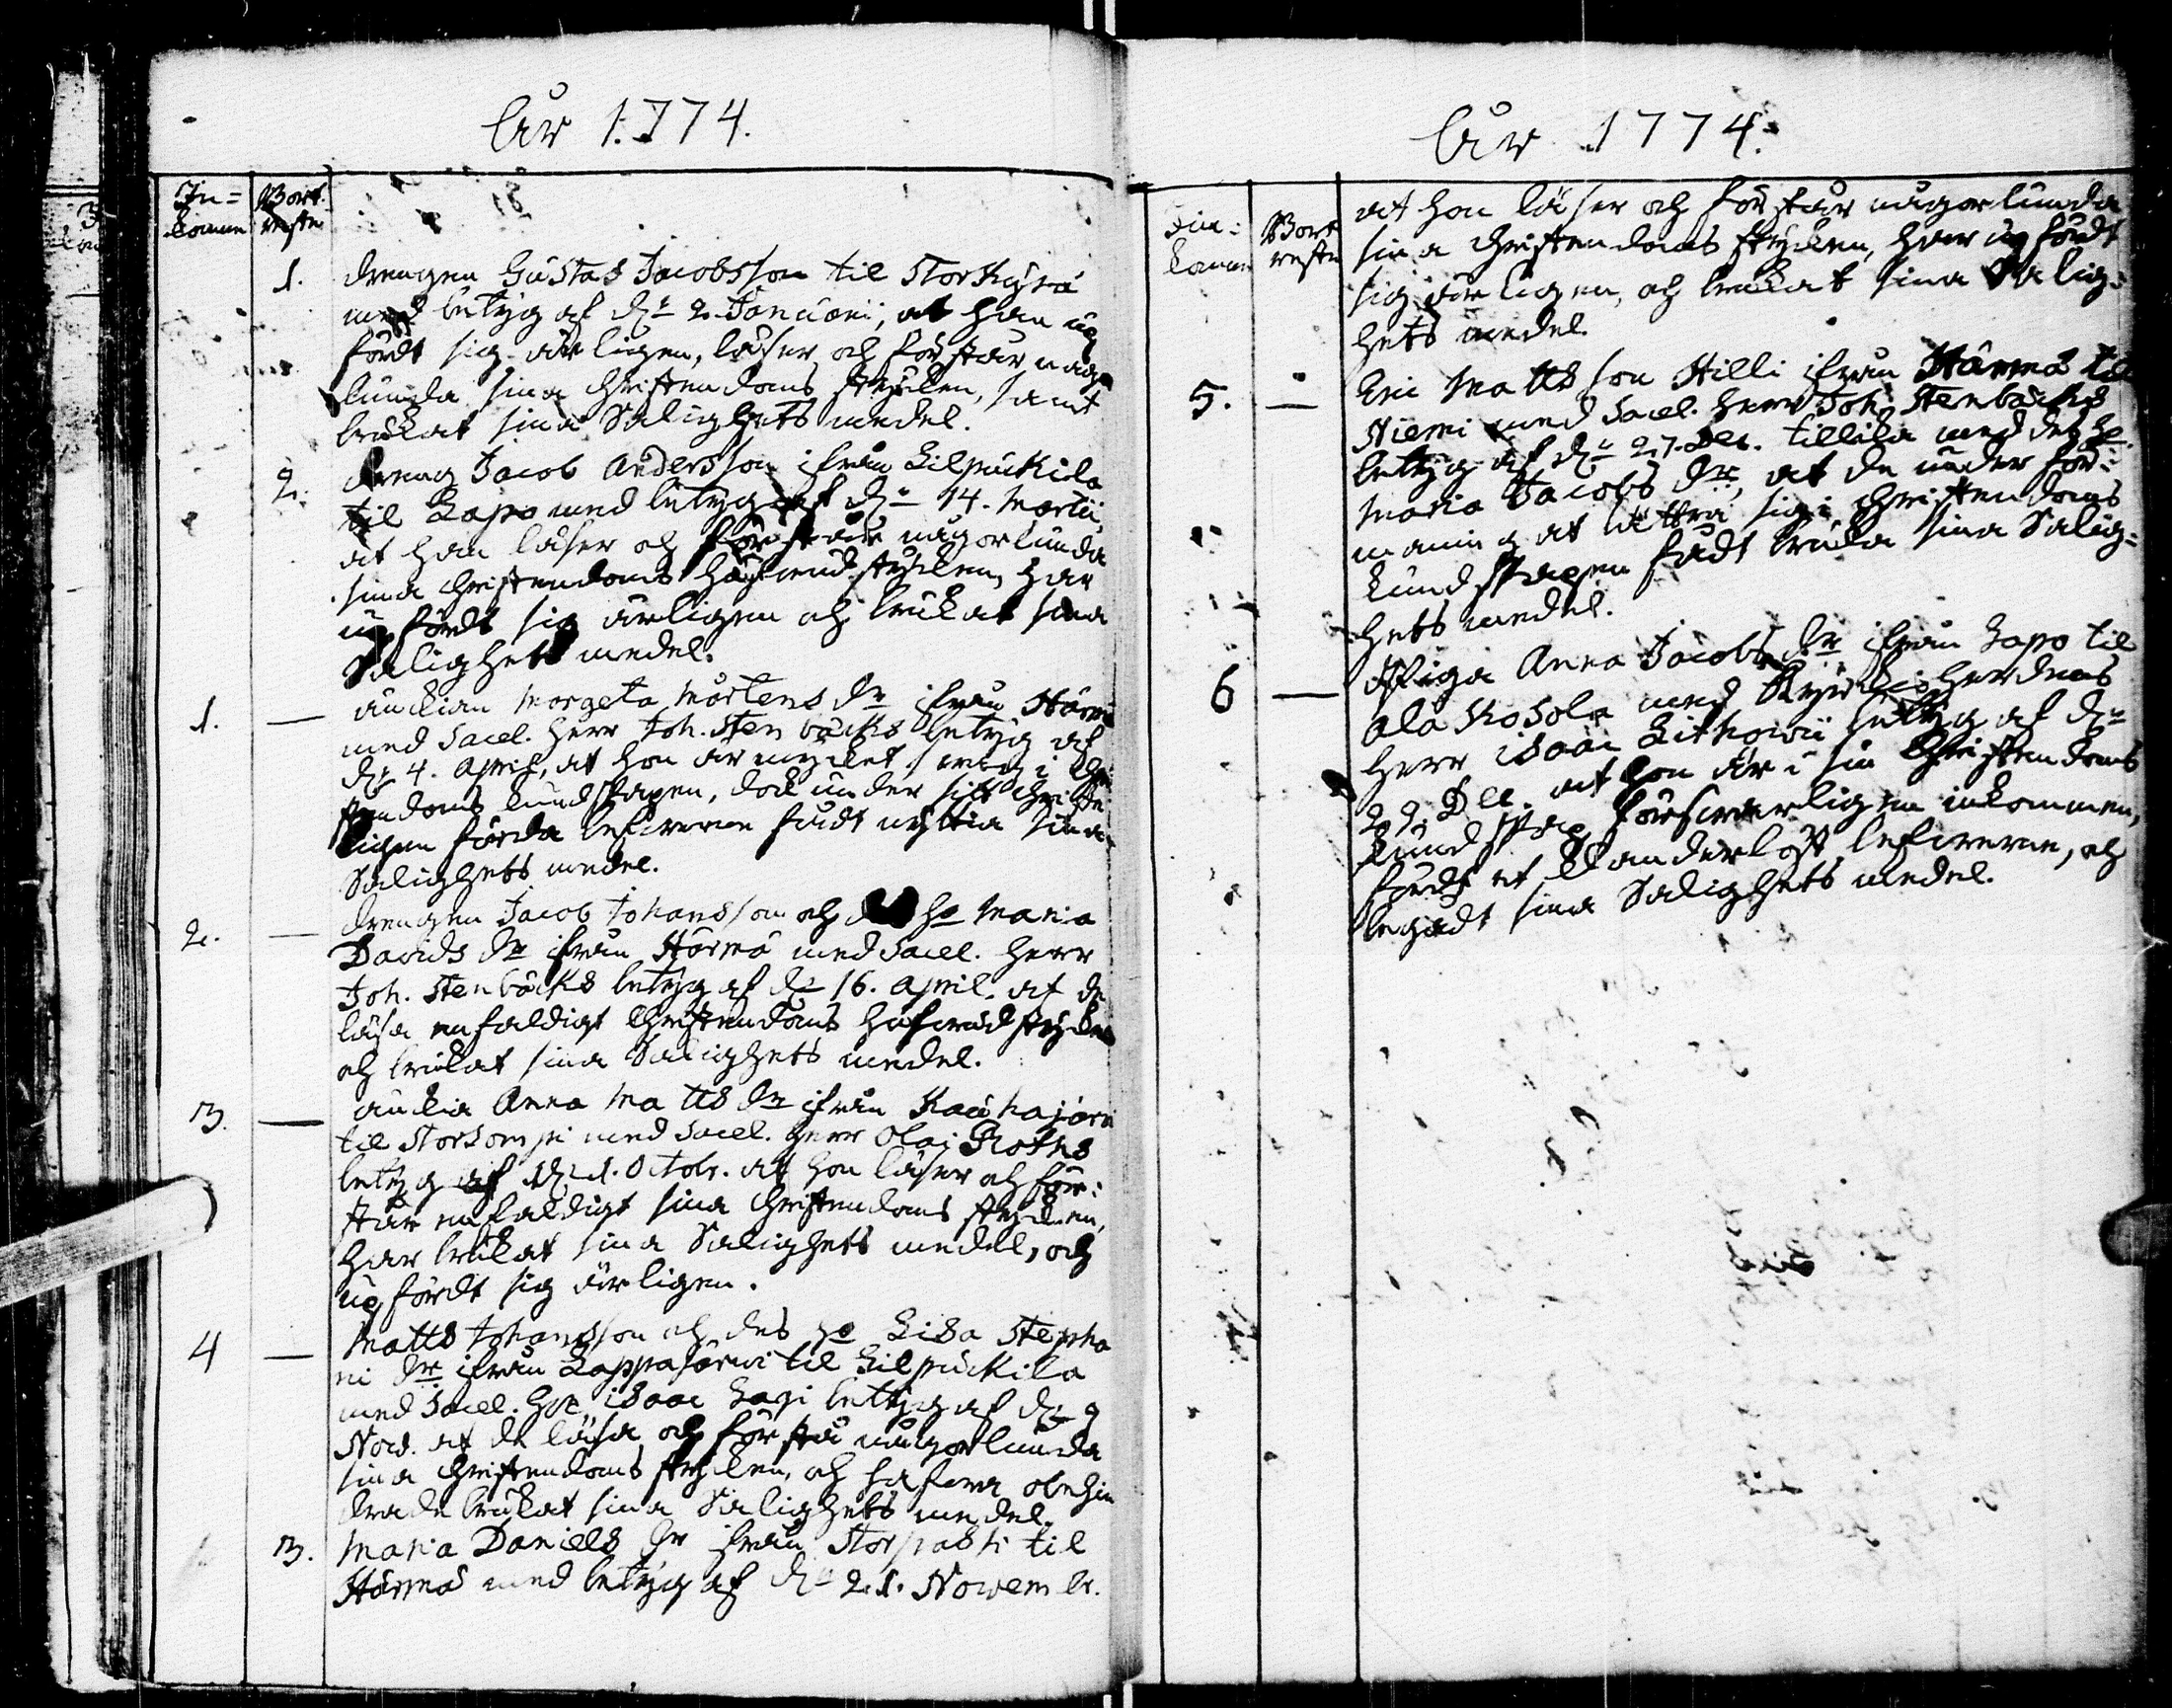 År 1774.
In= Bort
komne reste
1. drengen Gustav Jacobsson til Storkyrö
med betyg af dn 2. Januarii, at han up
fördt sig ärligen, läser och förstår någor
lunda sina Christendoms stycken, samt
brukat sina Salighets medel.
2. dreng Jacob Andersson ifrån Lilpuckila
til Lapo med betyg af dn 14. Martii
at han läser och förstår någorlunda
sina Christendoms hufwudstycken, har
upfördt sig ärligen och brukat sina
Salighets medel.
1. — änckian Margeta Mårtens dr ifrån Härmä
med Sacel. Herr Joh. Stenbäcks betyg af
dn 4. April, at hon är mycket swag i Chri
stendoms kundskapen, dock under sitt Christe
ligen förda lefwerne fådt nyttia sina
Salighets medel.
2. — drengen Jacob Johansson och hu Maria
Davids dr ifrån Härmä med Sacel. Herr
Joh. Stenbäcks betyg af dn 16. April. at de
läsa enfaldigt Christendoms hufwudstycken
och brukat sina Salighets medel.
3. — änckia Anna Matts dr ifrån Kauhajärvi
til Storsompi med Sacel. Herr Olai Roths
betyg af dn 1. Octobr. at hon läser och för:
står enfaldigt sina Christendoms stycken,
har brukat sina Salighets medel, och
upfördt sig ärligen.
4 — Matts Johansson och des hu Lisa Stepha
ni dr ifrån Lappajärwi til Lilpuckila
med Sacel. Hr Isaac Lagi betyg af dn 9
Nov. at de läsa och förstå någorlunda
sina Christendoms stycken, och hafwa obehin
drade brukat sina Salighets medel.
3. Maria Daniels dr ifrån Storpasti til
Härmä med betyg af dn 21. Novembr.
År 1774.
In= Bort
komne reste
at hon läser och förstår någorlunda
sina Christendoms stycken, har upfördt
sig ärligen, och brukat sina Salig=
hets medel.
5. — Eric Mattsson Hilli ifrån Härmä til
Niemi med Sacel. Herr Joh. Stenbäcks
betyg af dn 27. Dec. tillika med des hu
Maria Jacobs dr, at de under för=
maning at bättra sig i Christendoms
kundskapen fådt bruka sina Salig=
hets medel.
6 — Pigan Anna Jacobs dr ifrån Lapo til
Ala Kosola med Kyrckioherdens
Herr Isaac Lithovii betyg af dn
29. Dec. at hon är i sin Christendoms
kundskap förswarligen inkommen,
fördt et klanderlöst lefwerne, och
begådt sina Salighets medel.